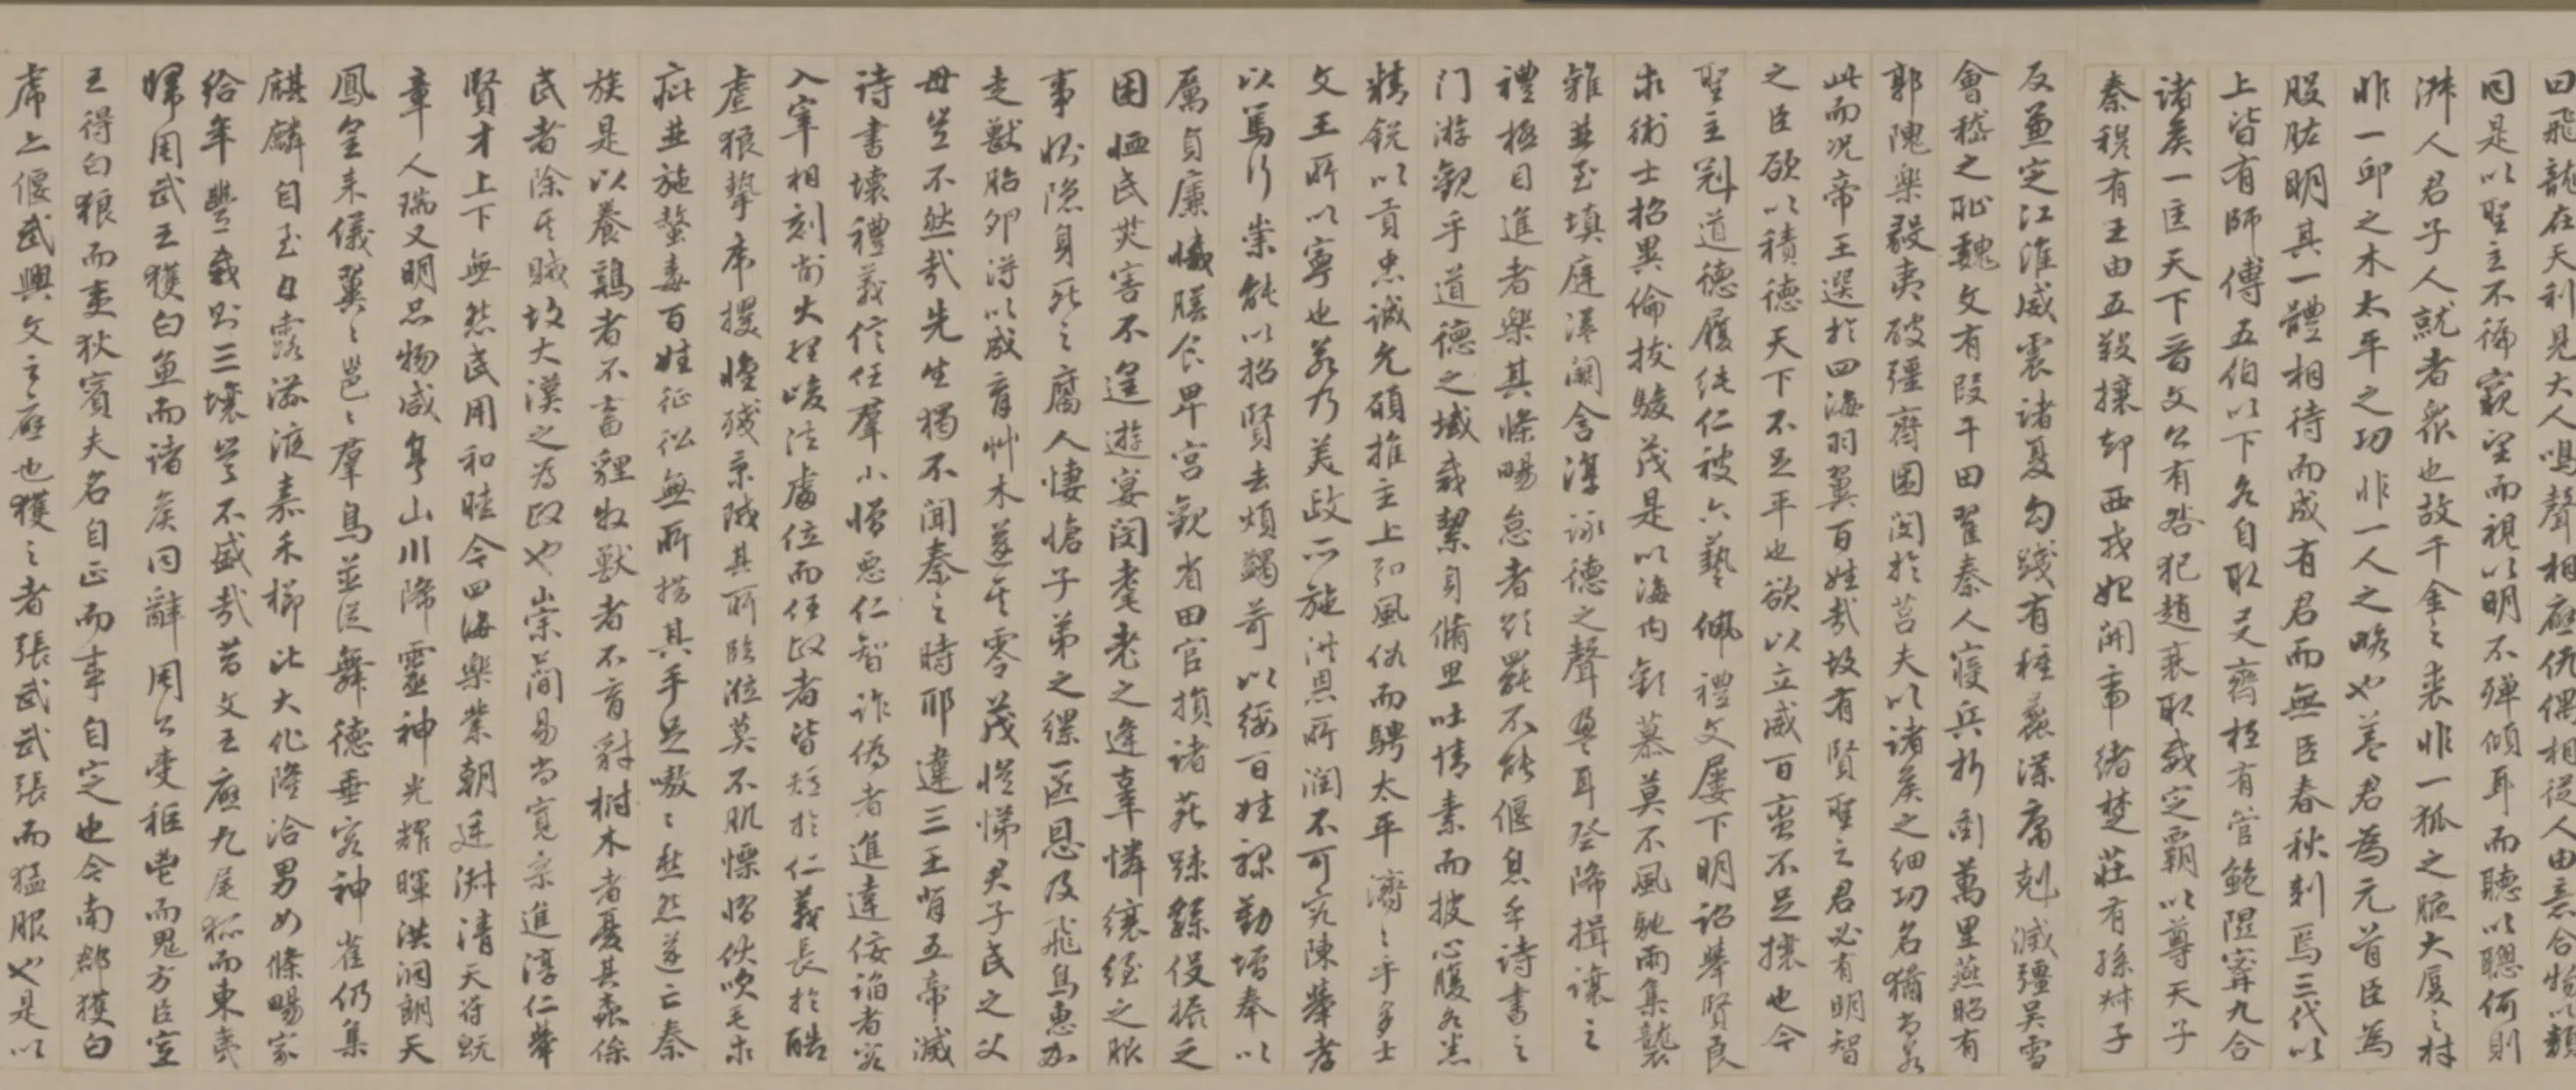 曰飛龍在天利見大人鳴聲相應仇偶相從人由意合物以類
同是以聖主不徧窺望而視以明不殫傾耳而聽以聰何則
淋人君子人就者眾也故千金之裘非一狐之腋大厦之材
非一邱之木太平之功非一人之略也蓋君為元首臣為
股肱明其一體相待而成有君而無臣春秋刺焉三代以
上皆有師傅五伯以下各自取友齊桓有管鮑隰甯九合
諸矦一匡天下晉文公有咎犯趙衰取威定霸以尊天子
秦穆有王由五羖攘却西戎始開帝緒楚莊有孫叔子
反兼定江淮威震諸夏勾踐有種蠡渫庸剋滅彊吳雪
會稽之恥魏文有段干田翟秦人寢兵折衝萬里燕昭有
郭隗樂毅夷破彊齊困閔於莒夫以諸矦之細功名猶尚若
此而況帝王選於四海羽翼百姓哉故有賢聖之君必有明智
之臣欲以積德天下不足平也欲以立威百蠻不足攘也今
聖主冠道德履純仁被六藝佩禮文屢下明詔舉賢良
求術士招異倫拔駿茂是以海內歡慕莫不風馳雨集襲
雜並至填庭溢闕含淳詠德之聲盈耳登降揖讓之
禮極目進者樂其條暢怠者欲罷不能偃息乎詩書之
门游觀乎道德之域咸絜身脩思吐情素而披心腹各悉
精銳以貢忠誠允願推主上弘風俗而騁太平濟〻乎多士
文王所以寧也若乃美政所施洪恩所潤不可究陳舉孝
以篤行崇能以招賢去煩蠲苛以綏百姓祿勤增奉以
厲貞廉減膳食卑宮觀省田官損諸苑踈繇役振乏
困恤民災害不遑遊宴閔耄老之逢辜憐縗絰之服
事惻隱身死之腐人悽愴子弟之縲匿恩及飛鳥惠加
走獸胎卵得以成育艸木遂其零茂愷悌君子民之父
母豈不然哉先生獨不聞秦之時耶違三王背五帝滅
诗書壞禮義信任羣小憎惡仁智詐偽者進達佞諂者容
入宰相刻削大理峻法處位而任政者皆短於仁義長於酷
虐狼摯虎攫懷殘秉賊其所臨涖莫不肌慄慴伏吹毛求
疵並施螫毒百姓征伀無所措其手足嗷〻愁怨遂亡秦
族是以養鷄者不畜貍牧獸者不育豺樹木者憂其蠹保
民者除其賊故大漢之為政也崇簡易尚寬柔進淳仁舉
賢才上下無怨民用和睦今四海樂業朝廷淋清天符既
章人瑞又明品物咸亨山川降靈神光燿暉洪洞朗天
鳳皇来儀翼〻邕〻羣鳥並從舞德垂容神雀仍集
麒麟自至甘露滋液嘉禾櫛比大化隆洽男女條暢家
給年豐咸則三壤豈不盛哉昔文王應九尾狐而東夷
歸周武王獲白魚而諸矦同辭周公受秬鬯而鬼方臣宣
王得白狼而夷狄賓夫名自正而事自定也今南郡獲白
虎亦偃武興文之應也獲之者張武武張而猛服也是以